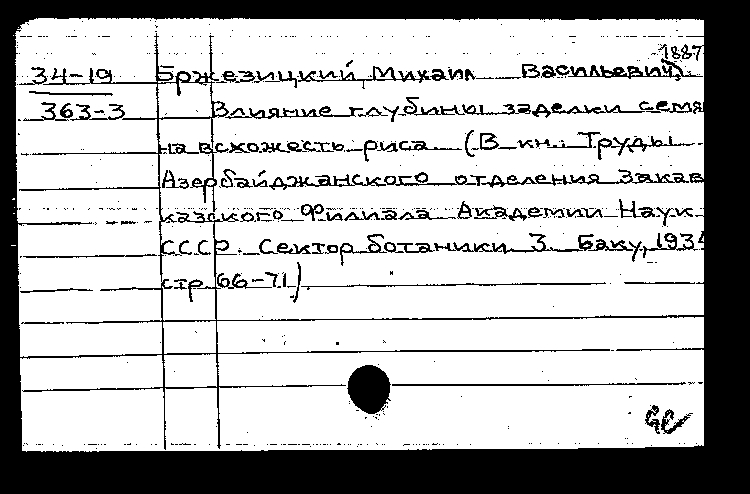 1887
34-19 Бржезицкий, Михаил Васильевич).
363-3 Влияние глубины заделки семя
на всхожесть риса. (В кн.: Труды
Азербайджанского отделения Закав
казского Филиала Академии Наук
СССР. Сектор ботаники 3. Баку, 1934
стр. 66-71).